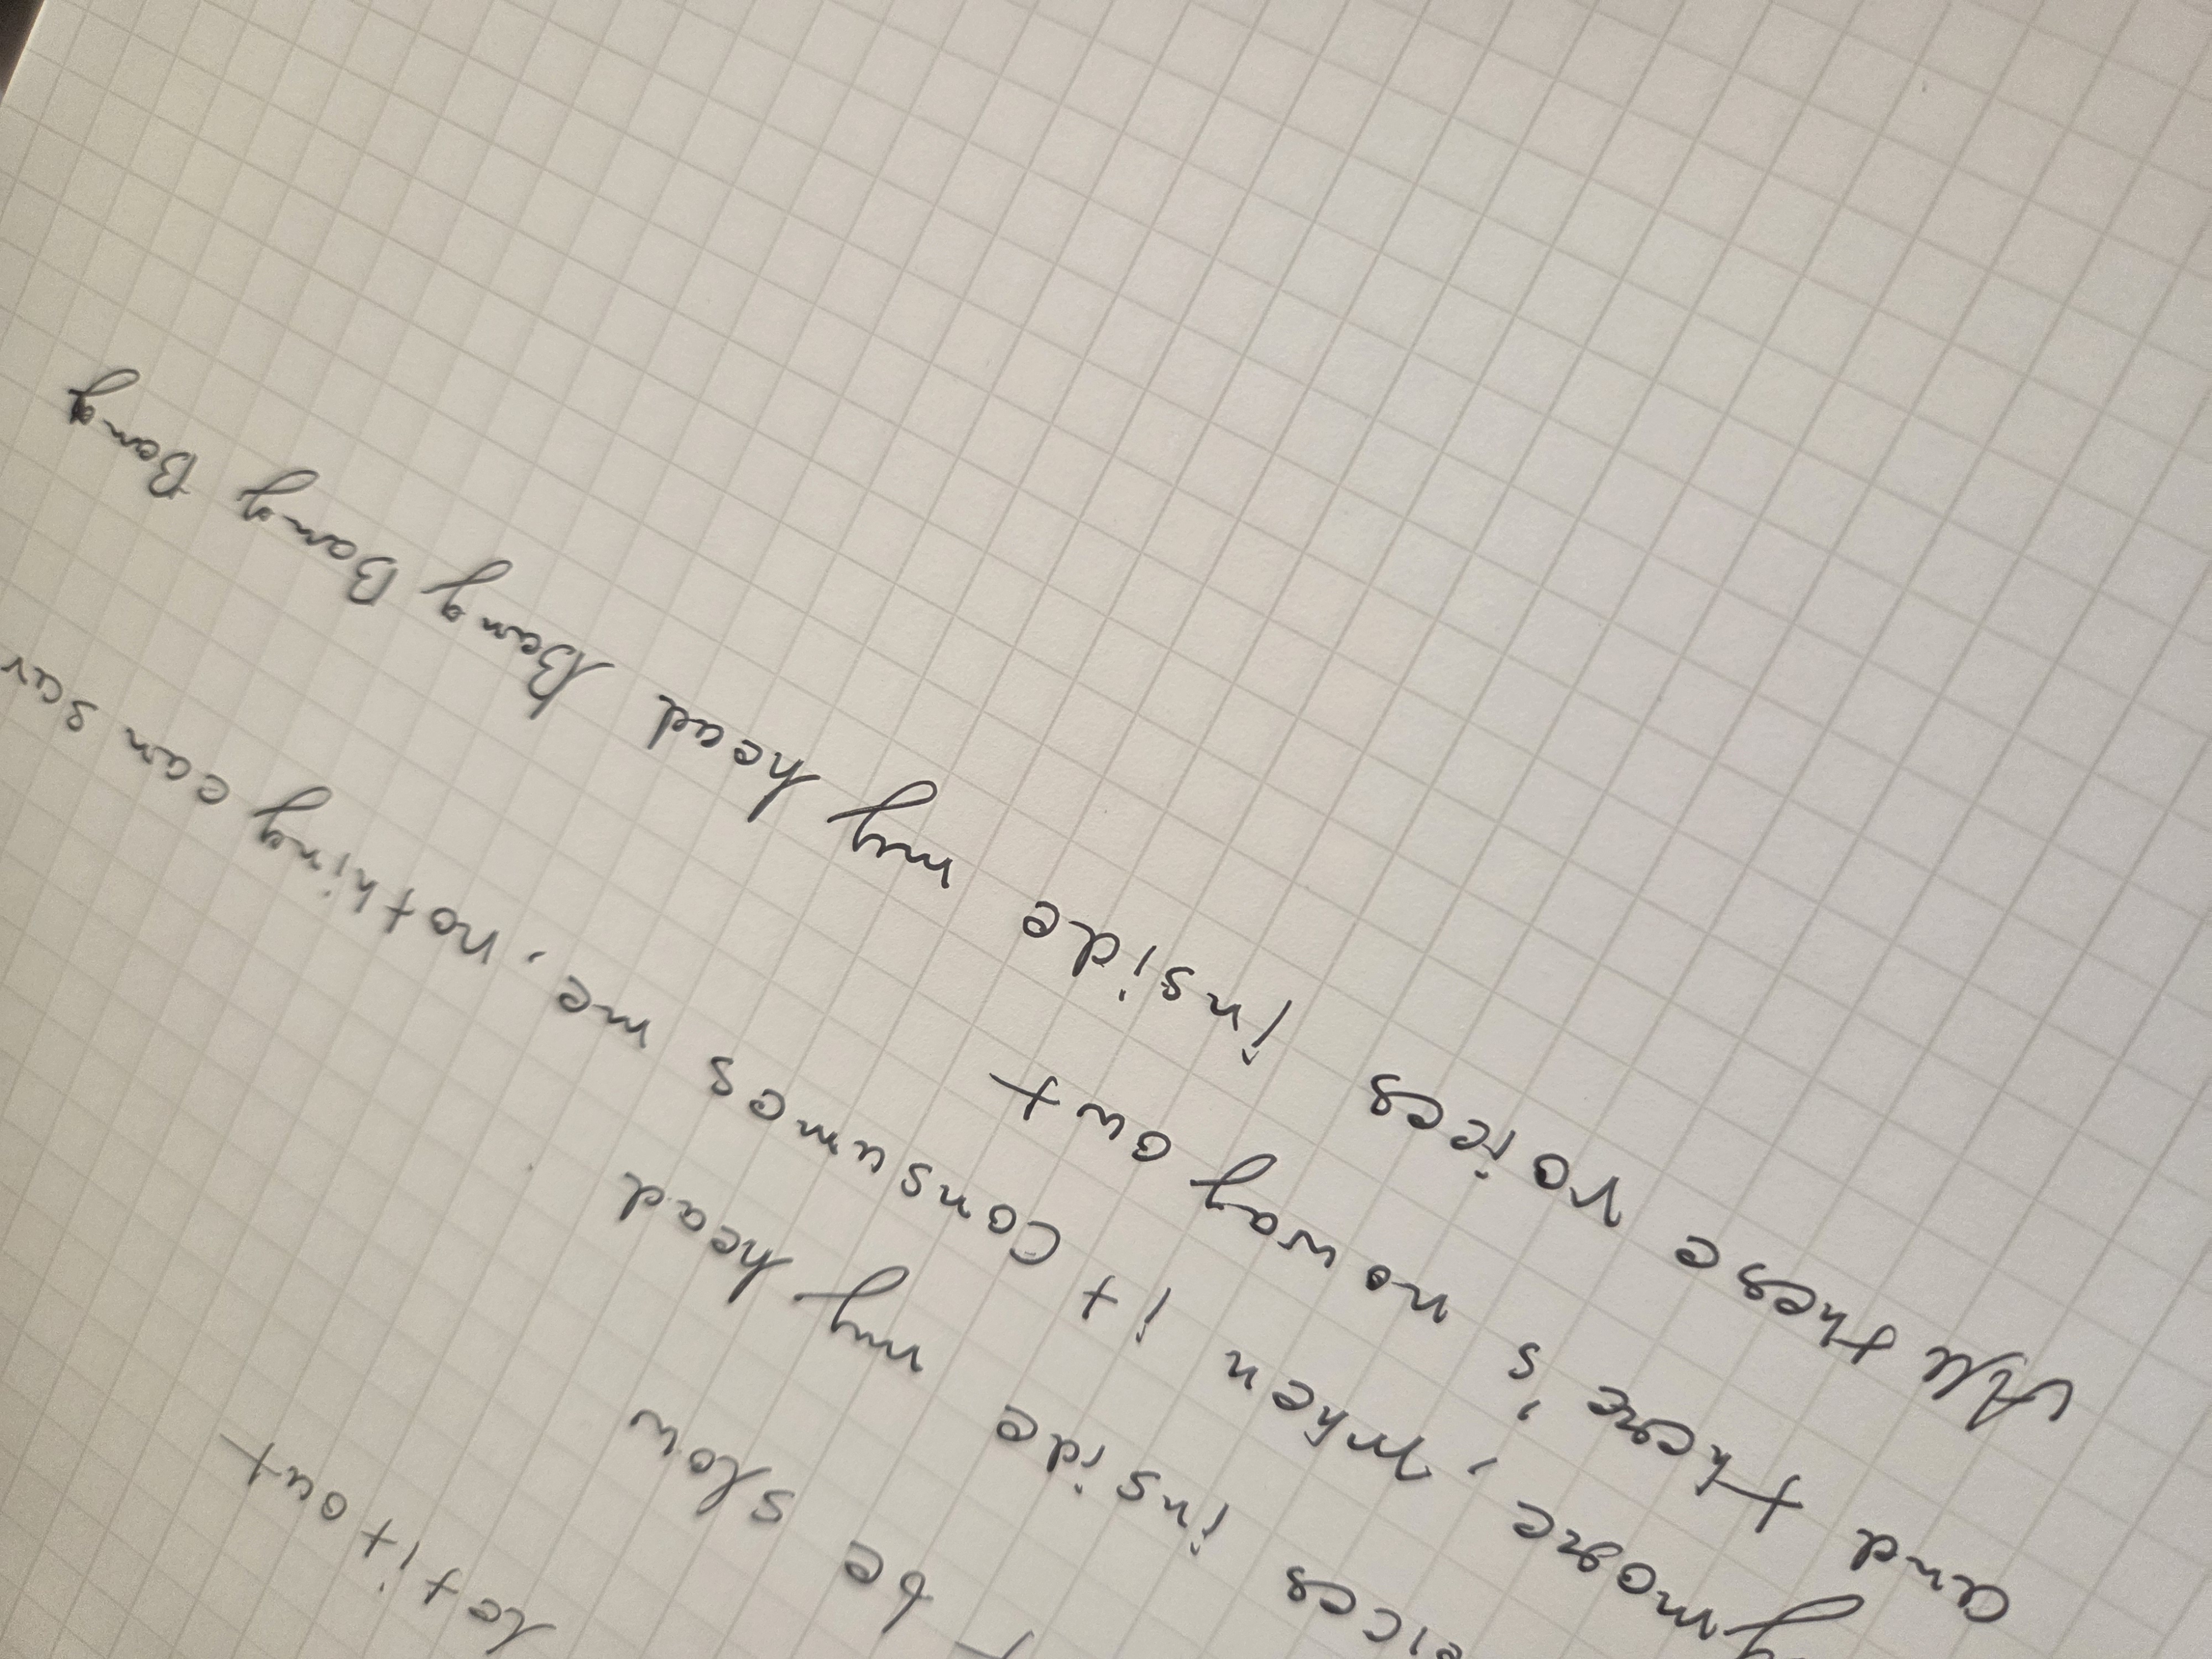 All these voices inside my head Bang Bang Bang
and there's no way out
more, when it consumes me, nothing can
inside my head
be slow
let it out